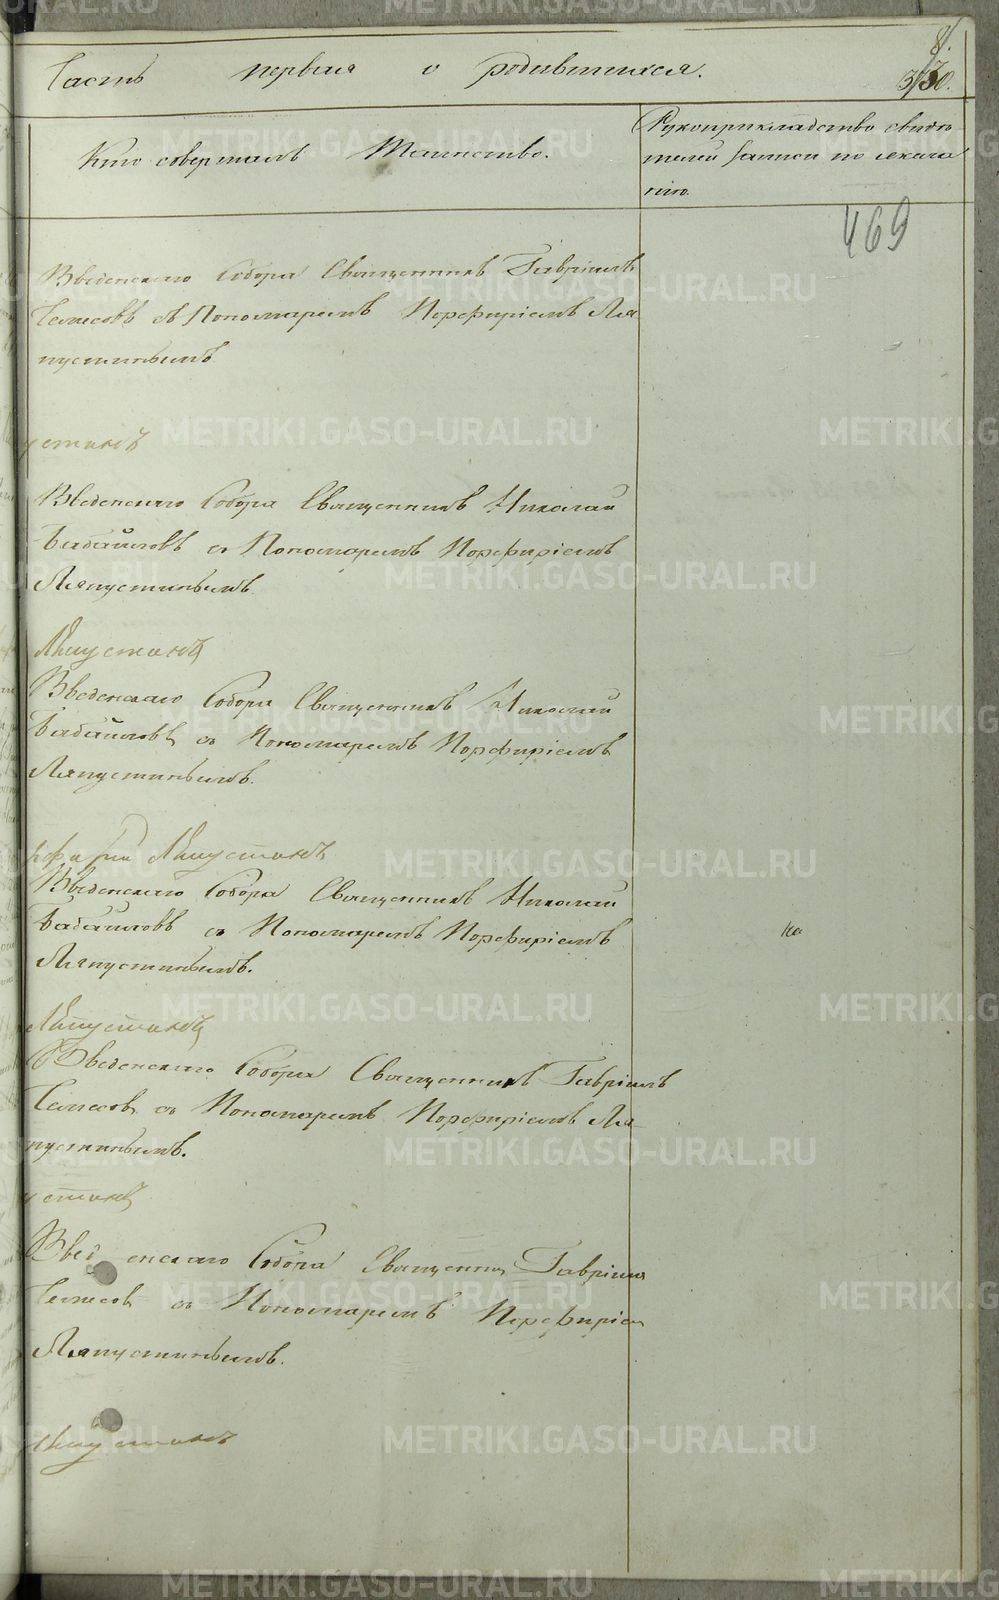 8.
Часть первая о родившихся.
330.
Кто совершалъ Таинство.
Рукоприкладство свидѣ
телей записи по желан
ію.
469
Введенскаго Собора Священникъ Гавріилъ
съ Пономаремъ Порфиріемъ Ля
пустинымъ
устинъ
Введенскаго Собора Священникъ Николай
Бабайловъ съ Пономаремъ Порфиріемъ
Ляпустинымъ.
Ляпустинъ
Введенскаго Собора Священникъ Николай
Бабайловъ съ Пономаремъ Порфиріемъ
Ляпустинымъ.
рфирий Ляпустинъ
Введенскаго Собора Священникъ Николай
Бабайловъ съ Пономаремъ Порфиріемъ
Ляпустинымъ.
Ляпустинъ
Введенскаго Собора Священникъ Гавріилъ
съ Пономаремъ Порфиріемъ Ля
пустинымъ.
устинъ
Введенскаго Собора Священни Гавріил
съ Пономаремъ Порфиріем
Ляпустинымъ.
Ляпустинъ
METRIKI.GASO-URAL.RU